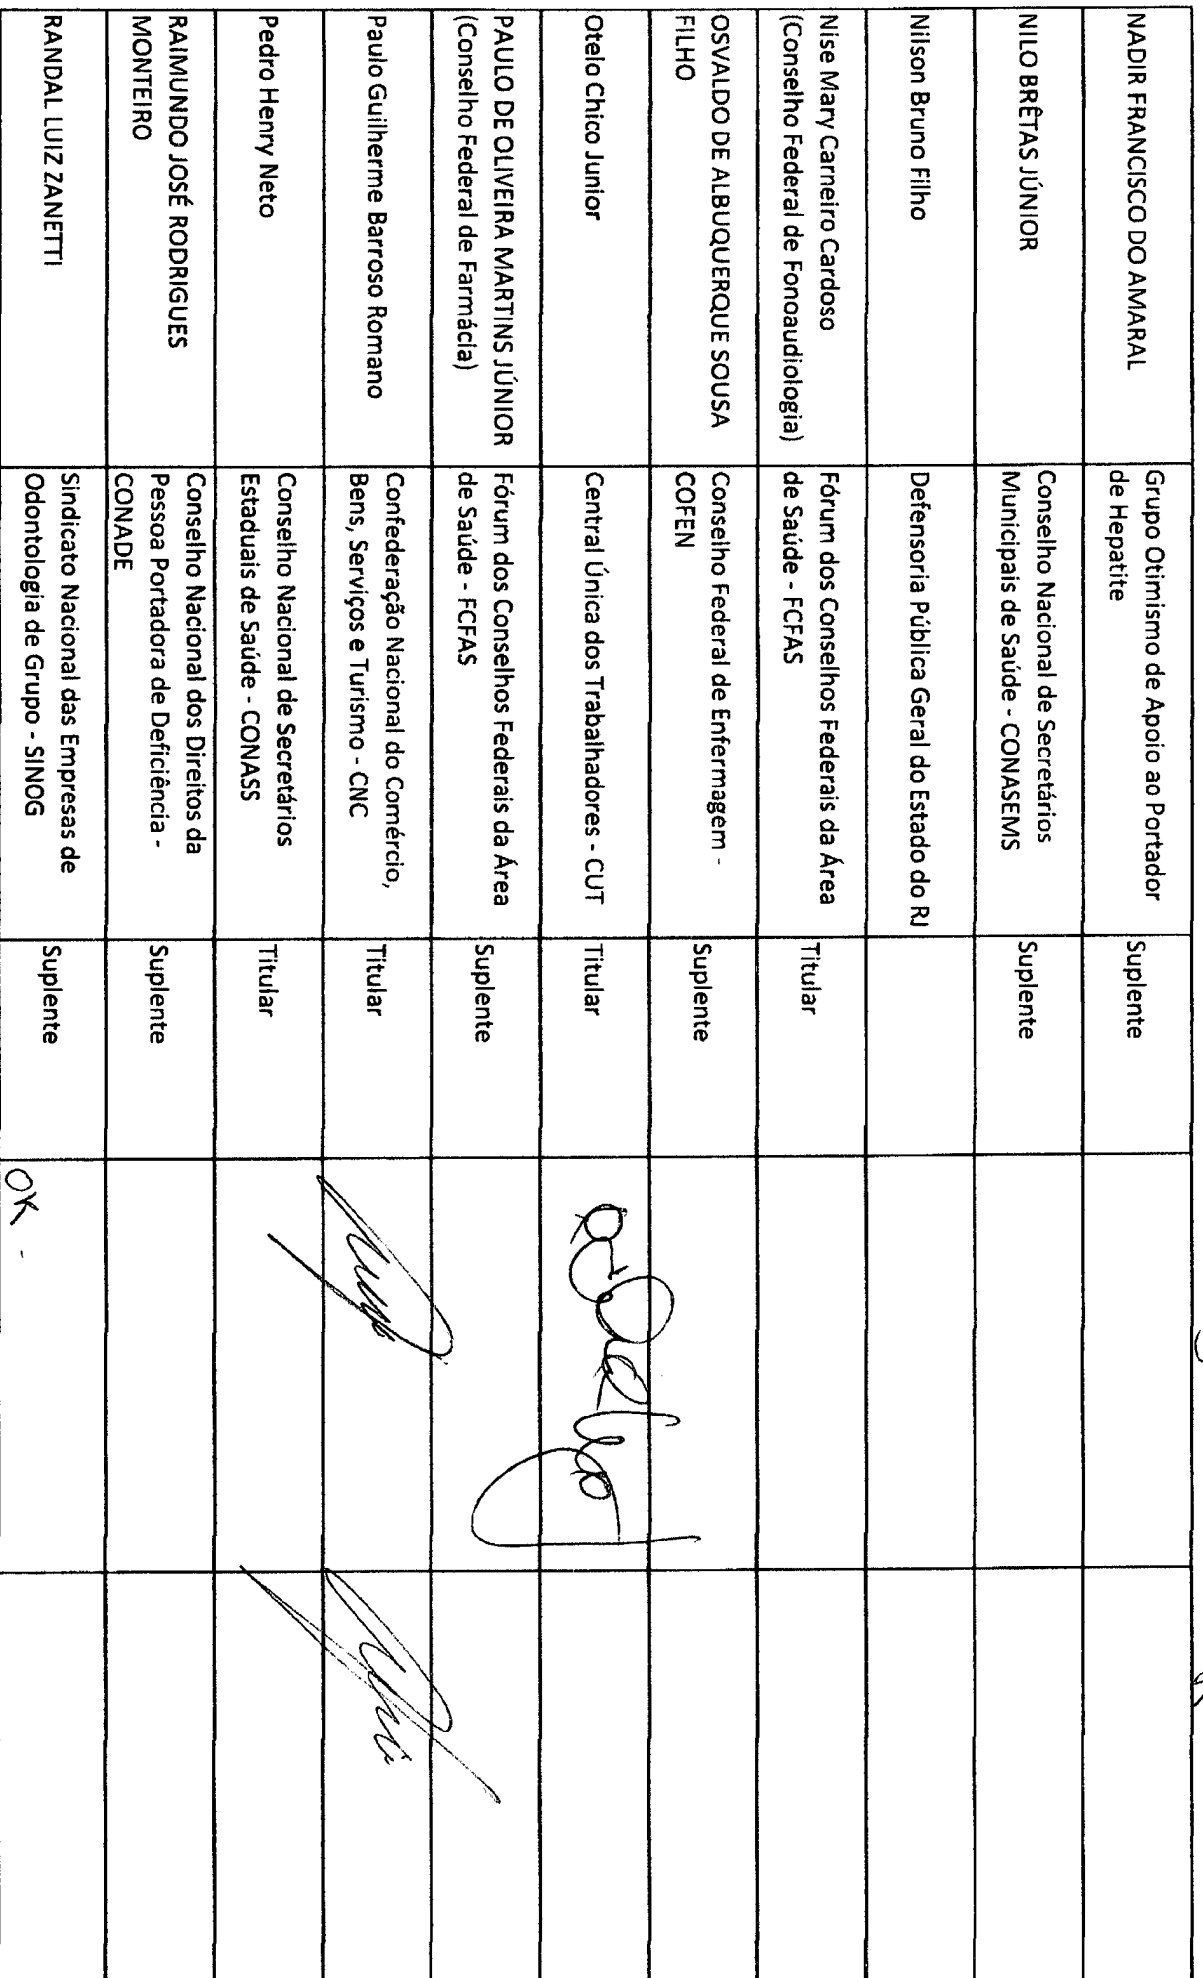 NADIR FRANCISCO DO AMARAL
Grupo Otimismo de Apoio ao Portador
de Hepatite
Suplente
NILO BRÊTAS JÚNIOR
Conselho Nacional de Secretários
Municipais de Saúde - CONASEMS
Suplente
Nilson Bruno Filho
Defensoria Pública Geral do Estado do RJ
Nise Mary Carneiro Cardoso
(Conselho Federal de Fonoaudiologia)
Fórum dos Conselhos Federais da Área
de Saúde - FCFAS
Titular
OSVALDO DE ALBUQUERQUE SOUSA
FILHO
Conselho Federal de Enfermagem -
COFEN
Suplente
Otelo Chico Junior
Central Única dos Trabalhadores - CUT
Titular
PAULO DE OLIVEIRA MARTINS JÚNIOR
(Conselho Federal de Farmácia)
Fórum dos Conselhos Federais da Área
de Saúde - FCFAS
Suplente
Paulo Guilherme Barroso Romano
Confederação Nacional do Comércio,
Bens, Serviços e Turismo - CNC
Titular
Pedro Henry Neto
Conselho Nacional de Secretários
Estaduais de Saúde - CONASS
Titular
RAIMUNDO JOSÉ RODRIGUES
MONTEIRO
Conselho Nacional dos Direitos da
Pessoa Portadora de Deficiência -
CONADE
Suplente
RANDAL LUIZ ZANETTI
Sindicato Nacional das Empresas de
Odontologia de Grupo - SINOG
Suplente
OK -